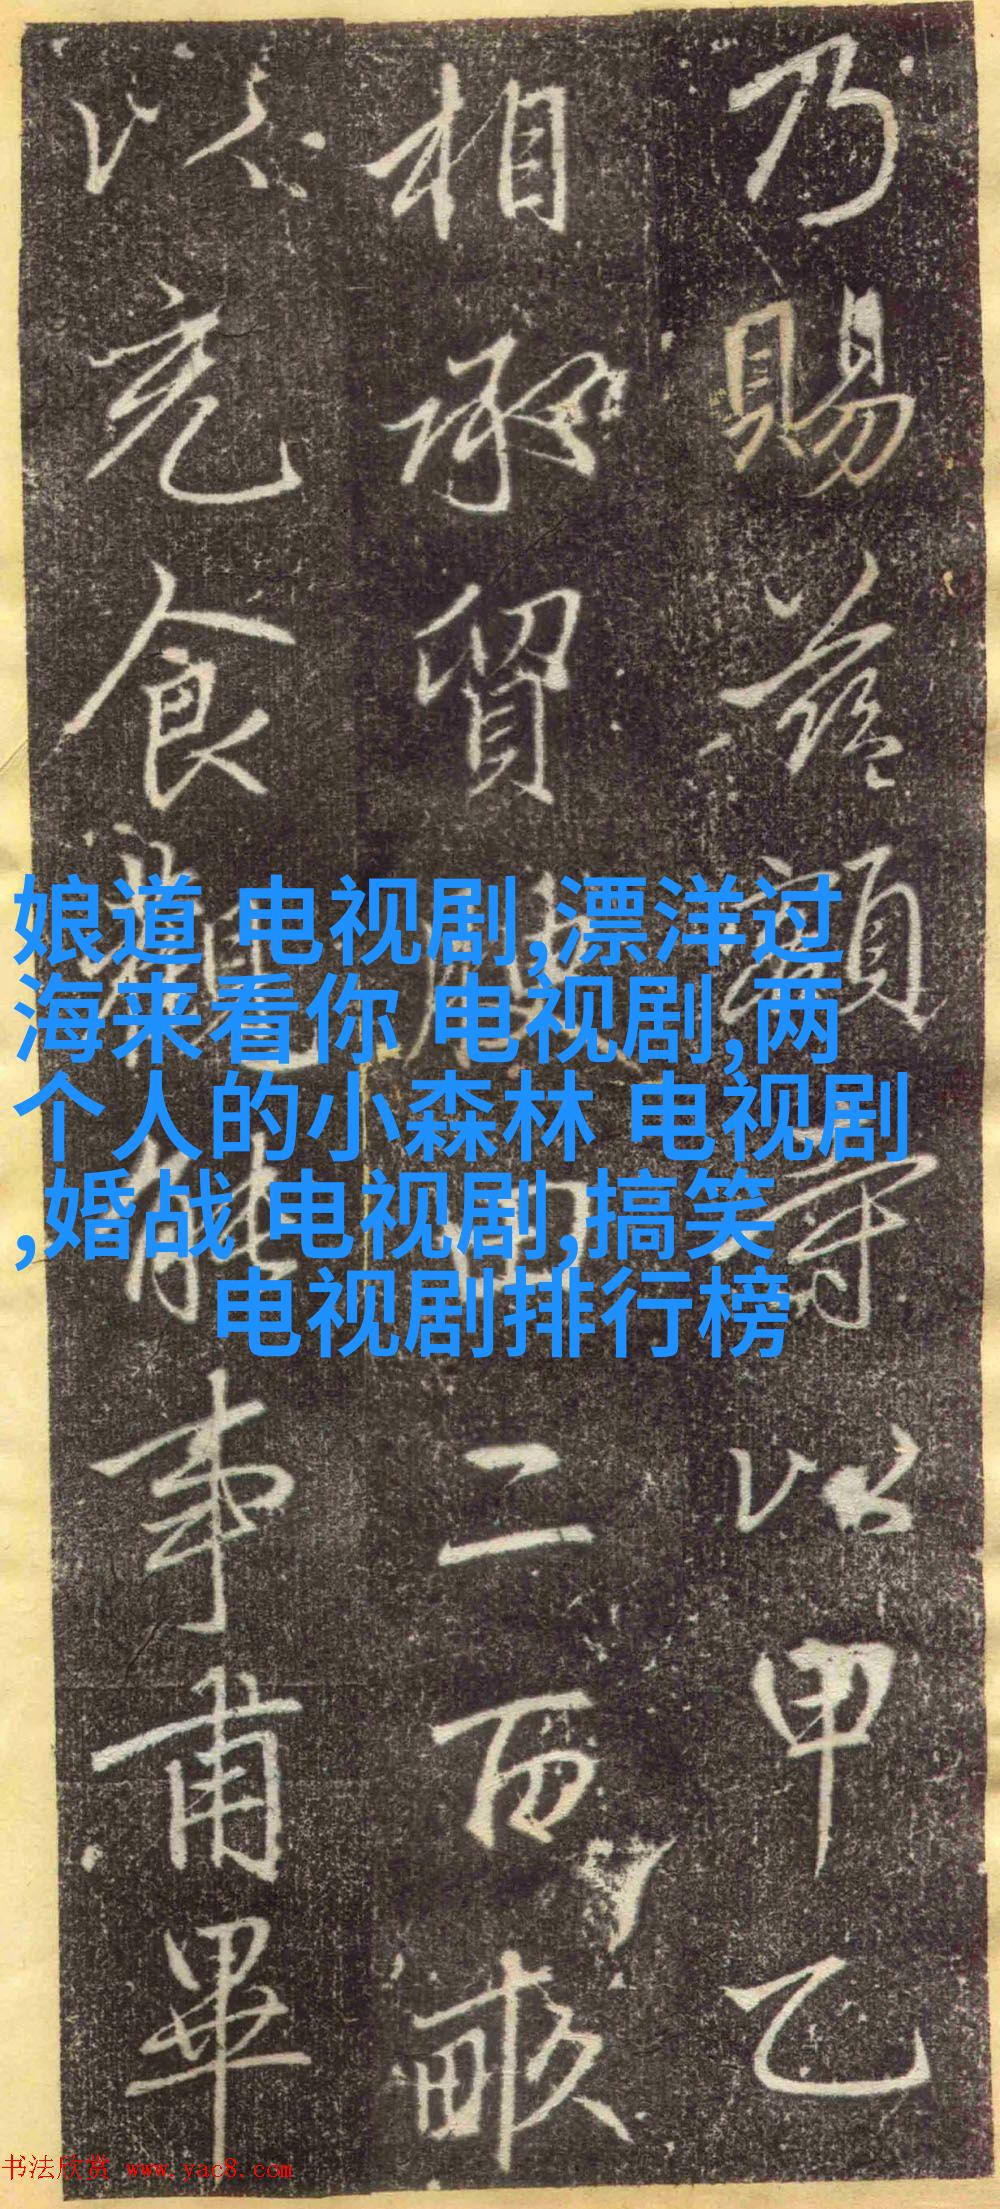 乃賜額寺以甲乙
相承貿田二百畝
以充食能事甫畢
娘道 电视剧,漂洋过
海来看你 电视剧,两
个人的小森林 电视剧
,婚战 电视剧,搞笑
电视剧排行榜
书法欣赏 www.yac8.com